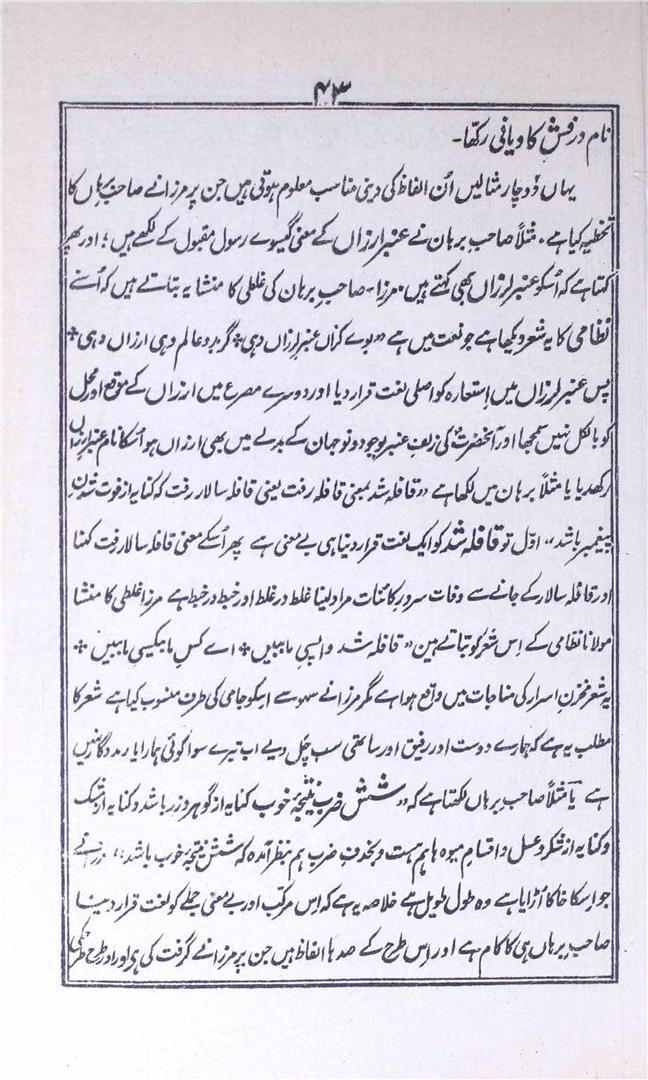 ۴۳
نام درفش کاویانی رکھا۔
یہاں دو چار مثالیں اُن الفاظ کی دینی مناسب معلوم ہوتی ہیں جن پر مرزا نے صاحب برہاں کا
تخطیہ کیا ہے۔ مثلاً صاحب برہان نے عنبر ارزاں کے معنی گیسوے رسول مقبول کے لکھے ہیں؛ اور پھر
کہتا ہے کہ اُسکو عنبر لرزاں بھی کہتے ہیں۔ مرزا صاحبِ برہان کی غلطی کا منشا یہ بتاتے ہیں کہ اُسنے
نظامی کا یہ شعر دیکھا ہے جو نعت میں ہے "بوے کزاں عنبر لرزاں دہی * گر بدو عالم دہی ارزاں دہی *
پس عنبر لرزاں میں استعارہ کو اصلی لغت قرار دیا اور دوسرے مصرع میں ارزاں کے موقع اور محل
کو بالکل نہیں سمجھا اور آنحضرتؐ کی زلفِ عنبر بو جو دونو جہان کے بدلے میں بھی ارزاں ہو اُسکا نام عنبر ارزاں
رکھدیا یا مثلاً برہان میں لکھا ہے "قافلہ شد بمعنی قافلہ رفت یعنی قافلہ سالار رفت کہ کنایہ از فوت شدنِ
پیغمبر باشد" اوّل تو قافلہ شد کو ایک لغت قرار دینا ہی بے معنی ہے پھر اُسکے معنی قافلہ سالار رفت کہنا
اور قافلہ سالار کے جانے سے وفات سرورِ کائنات مراد لینا غلط در غلط اور خبط در خبط ہے مرزا غلطی کا منشا
مولانا نظامی کے اِس شعر کو بتاتے ہین "قافلہ شد واپسیِ ما ببیں * اے کسِ ما بیکسیِ ما ببیں *
یہ شعر مخزنِ اسرار کی مناجات میں واقع ہوا ہے مگر مرزا نے سہو سے اِسکو جامی کی طرف منسوب کیا ہے شعر کا
مطلب یہ ہے کہ ہمارے دوست اور رفیق اور ساتھی سب چل دیے اب تیرے سوا کوئی ہمارا یار مددگار نہیں
ہے یا مثلاً صاحبِ برہاں لکھتا ہے کہ "شش ضرب نتیجۂ خوب کنایہ از گوہر و زر باشد و کنایہ از مشک
و کنایہ از شکر و عسل و اقسامِ میوہ ہا ہم ہست و بحذفِ ضرب ہم بنظر آمدہ کہ شش نتیجۂ خوب باشد" مرزا نے
جو اِسکا خاکا اُڑایا ہے وہ طول طویل ہے خلاصہ یہ ہے کہ اِس مرکّب اور بے معنی جملے کو لغت قرار دینا
صاحبِ برہاں ہی کا کام ہے اور اِس طرح کے صدہا الفاظ ہیں جن پر مرزا نے گرفت کی ہے اور